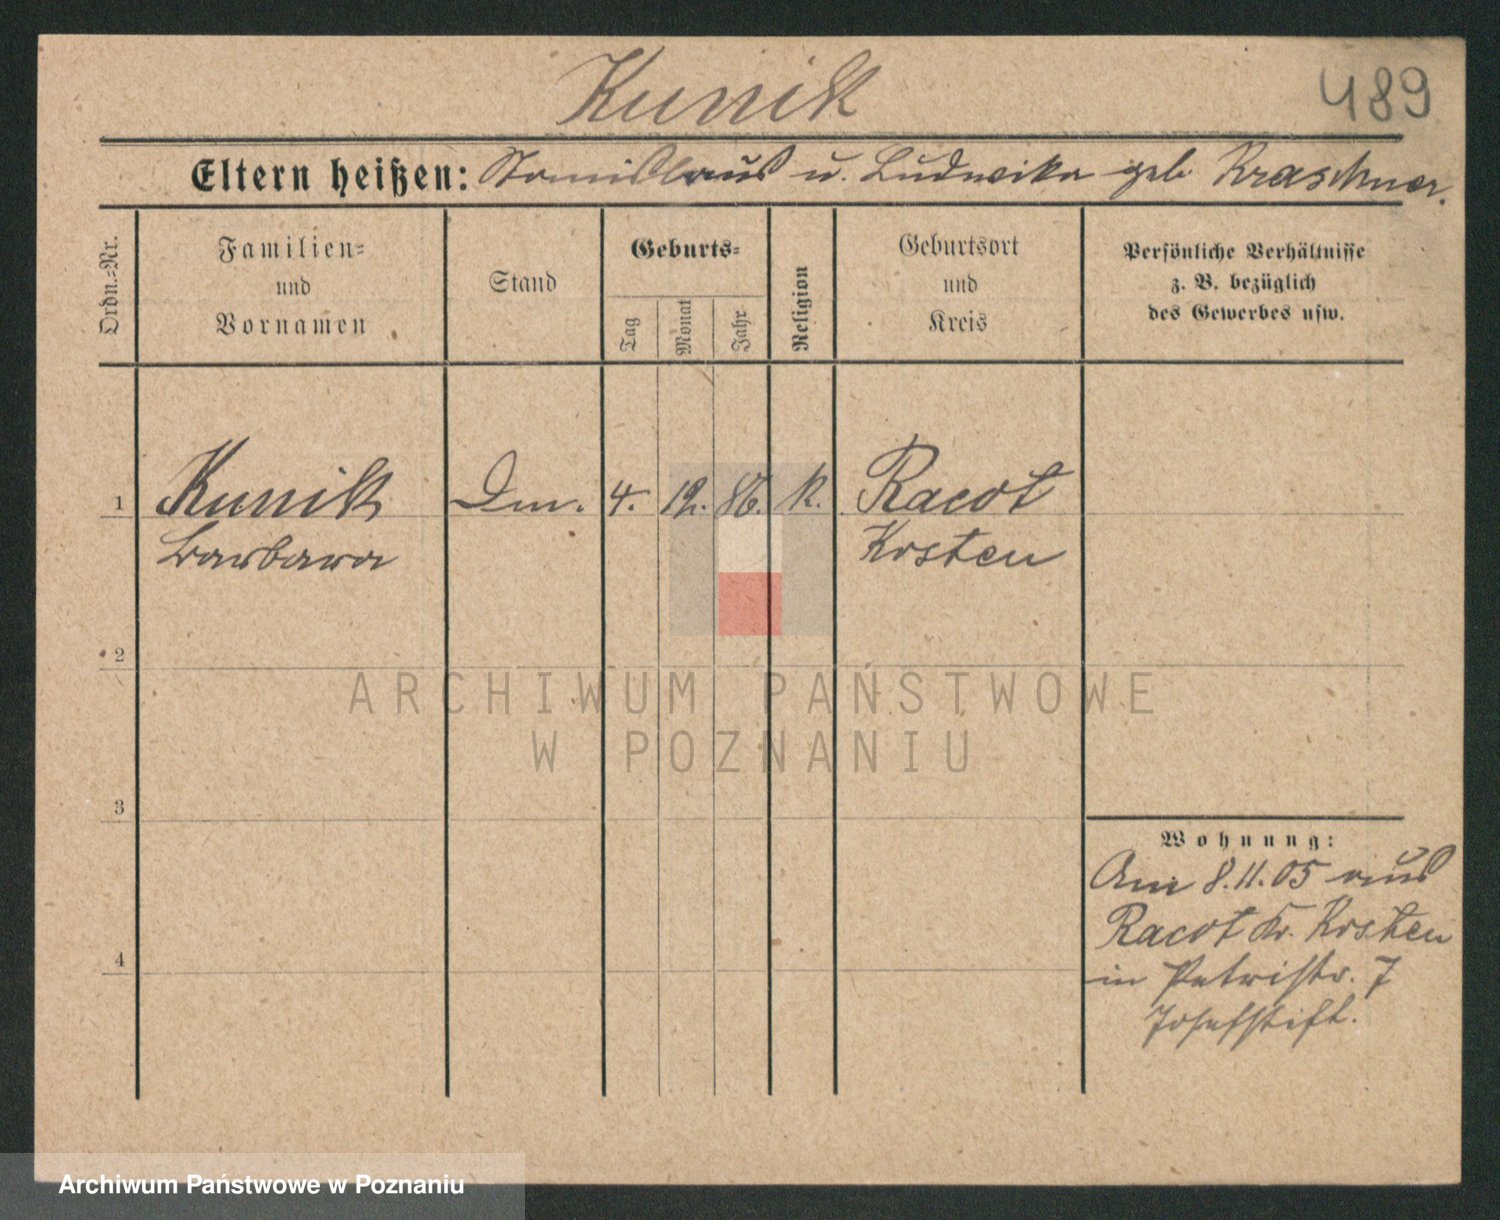 Kunik
489
Eltern heißen: Stanislaus u. Ludwika geb. Kraschner.
Ordn.-Nr.
Familien-
und
Vornamen
Stand
Geburts-
Tag
Monat
Jahr
Religion
Geburtsort
und
Kreis
Persönliche Verhältnisse
z. B. bezüglich
des Gewerbes usw.
1 Kunik 4. 12. 86. K. Racot
Barbara Kosten
2
ARCHIWUM PAŃSTWOWE
W POZNANIU
3
Wohnung:
Am 8.11.05 aus
Racot Kr. Kosten
4
in Petristr. 7
Josefstift.
Archiwum Państwowe w Poznaniu